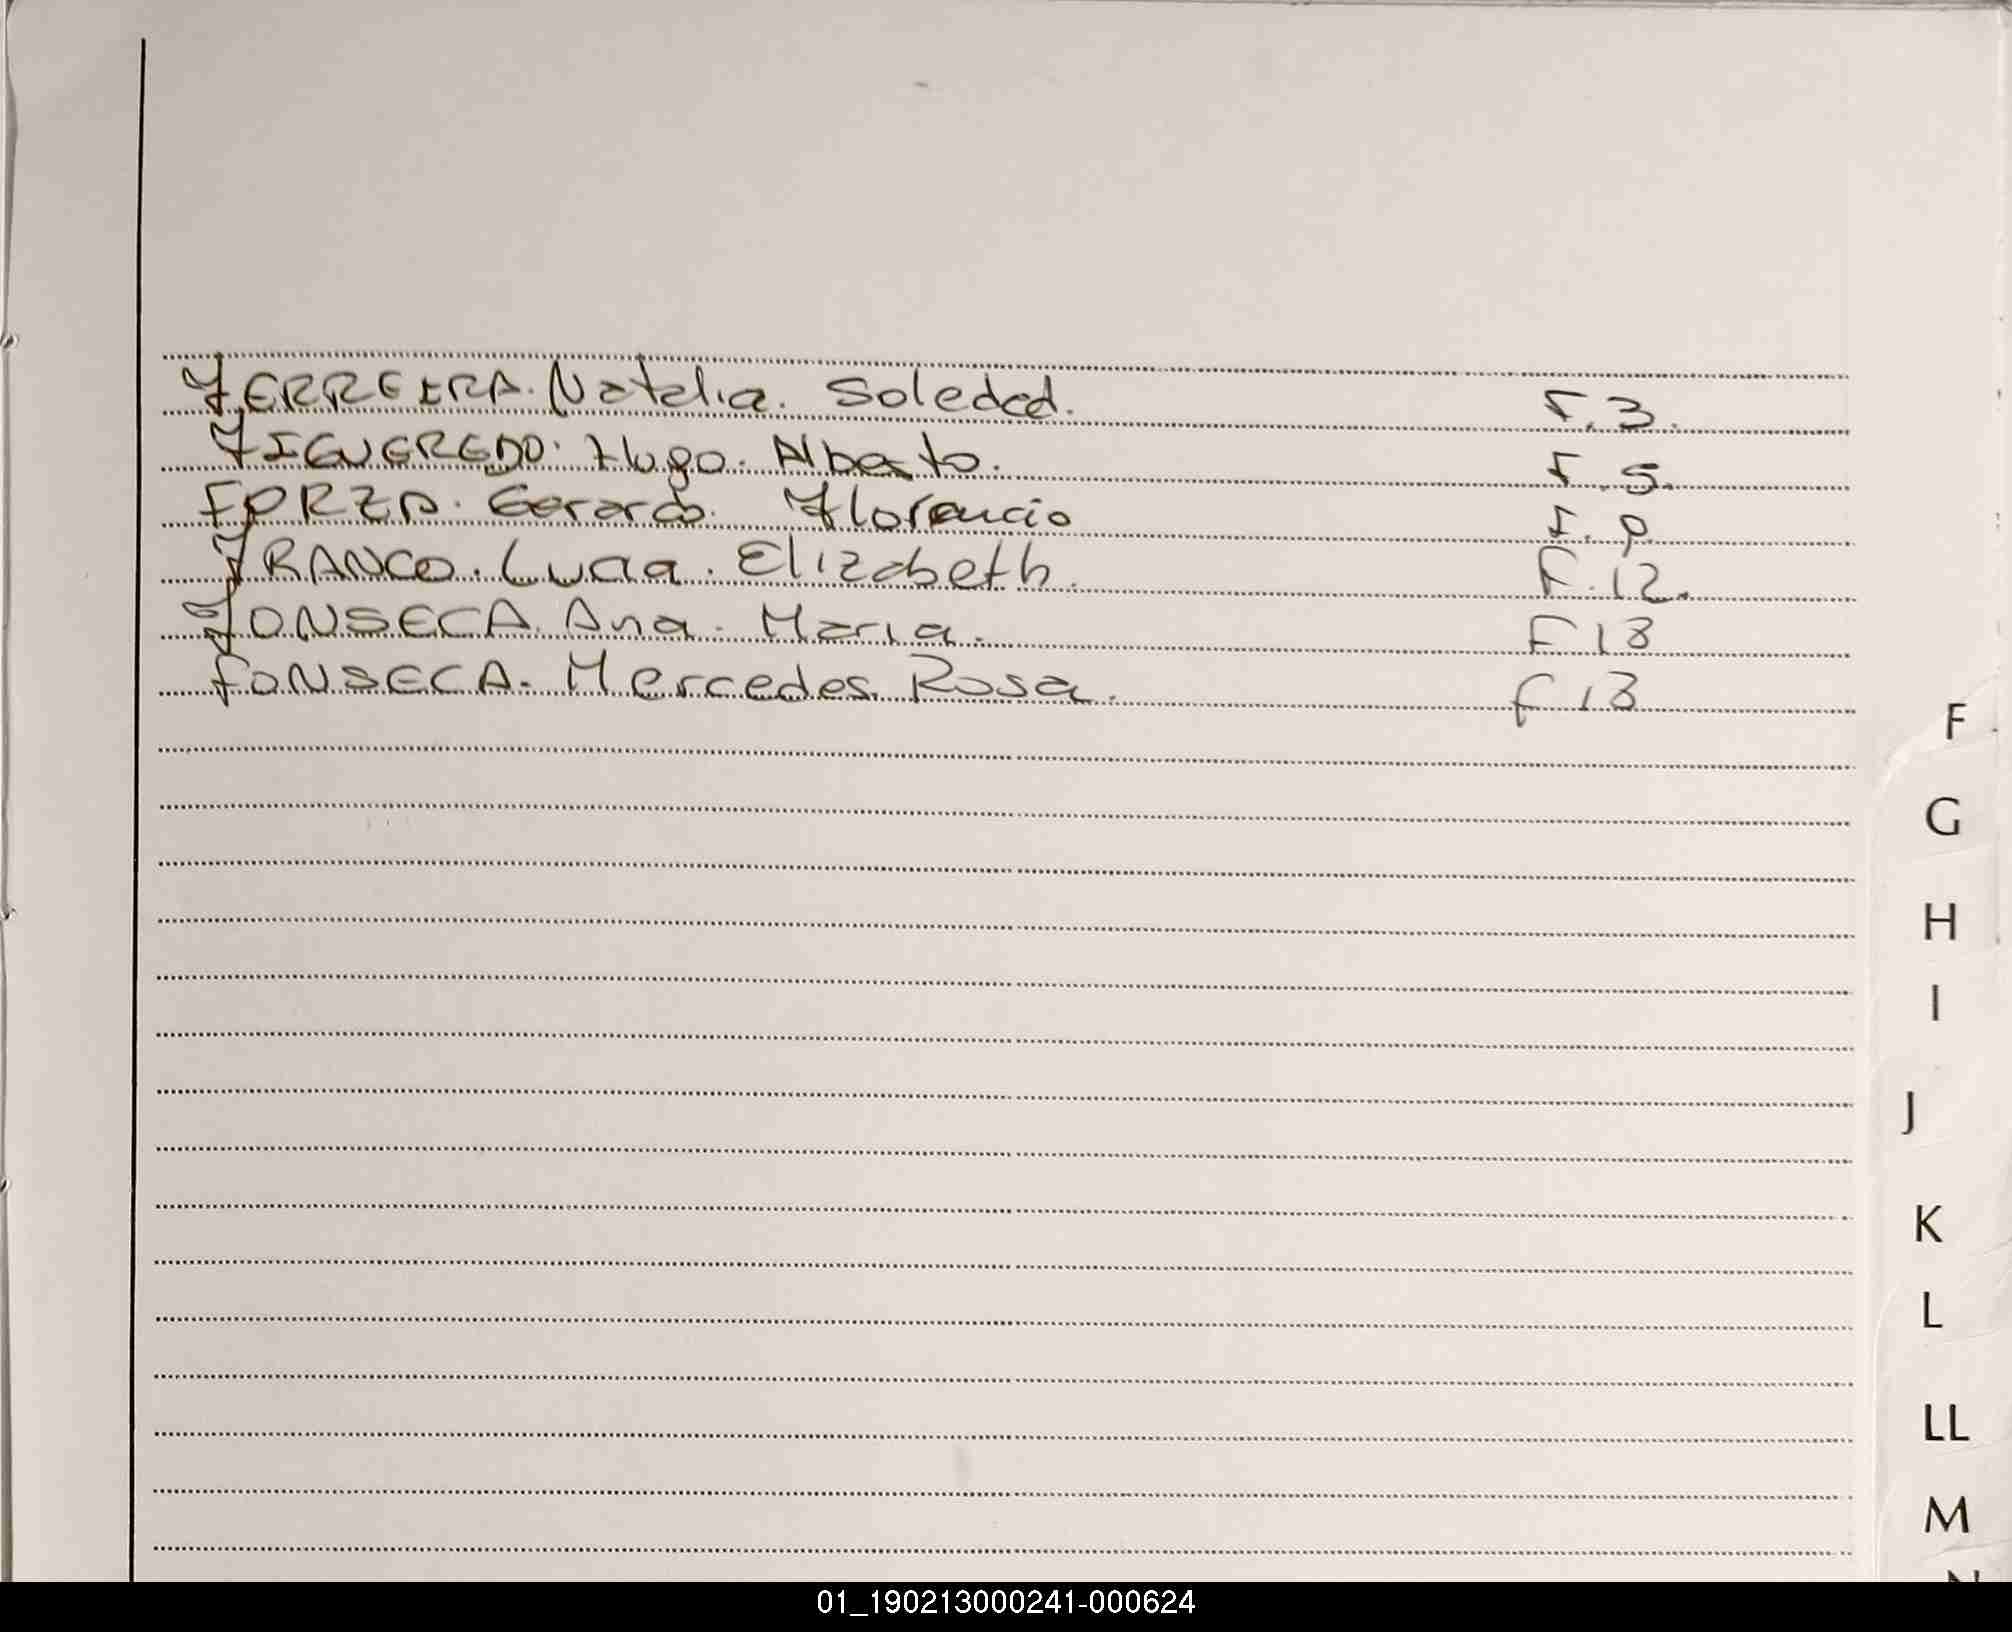 FERREIRA. Natalia. Soledad. F.3.
FIGUEREDO. Hugo. Alberto. F.5.
FORZA. Gerardo. Florencio F.9
FRANCO. Lucia. Elizabeth. F.12.
FONSECA. Ana. Maria. F 13
FONSECA. Mercedes. Rosa. F 13
F
G
H
I
J
K
L
LL
M
N
01_190213000241-000624